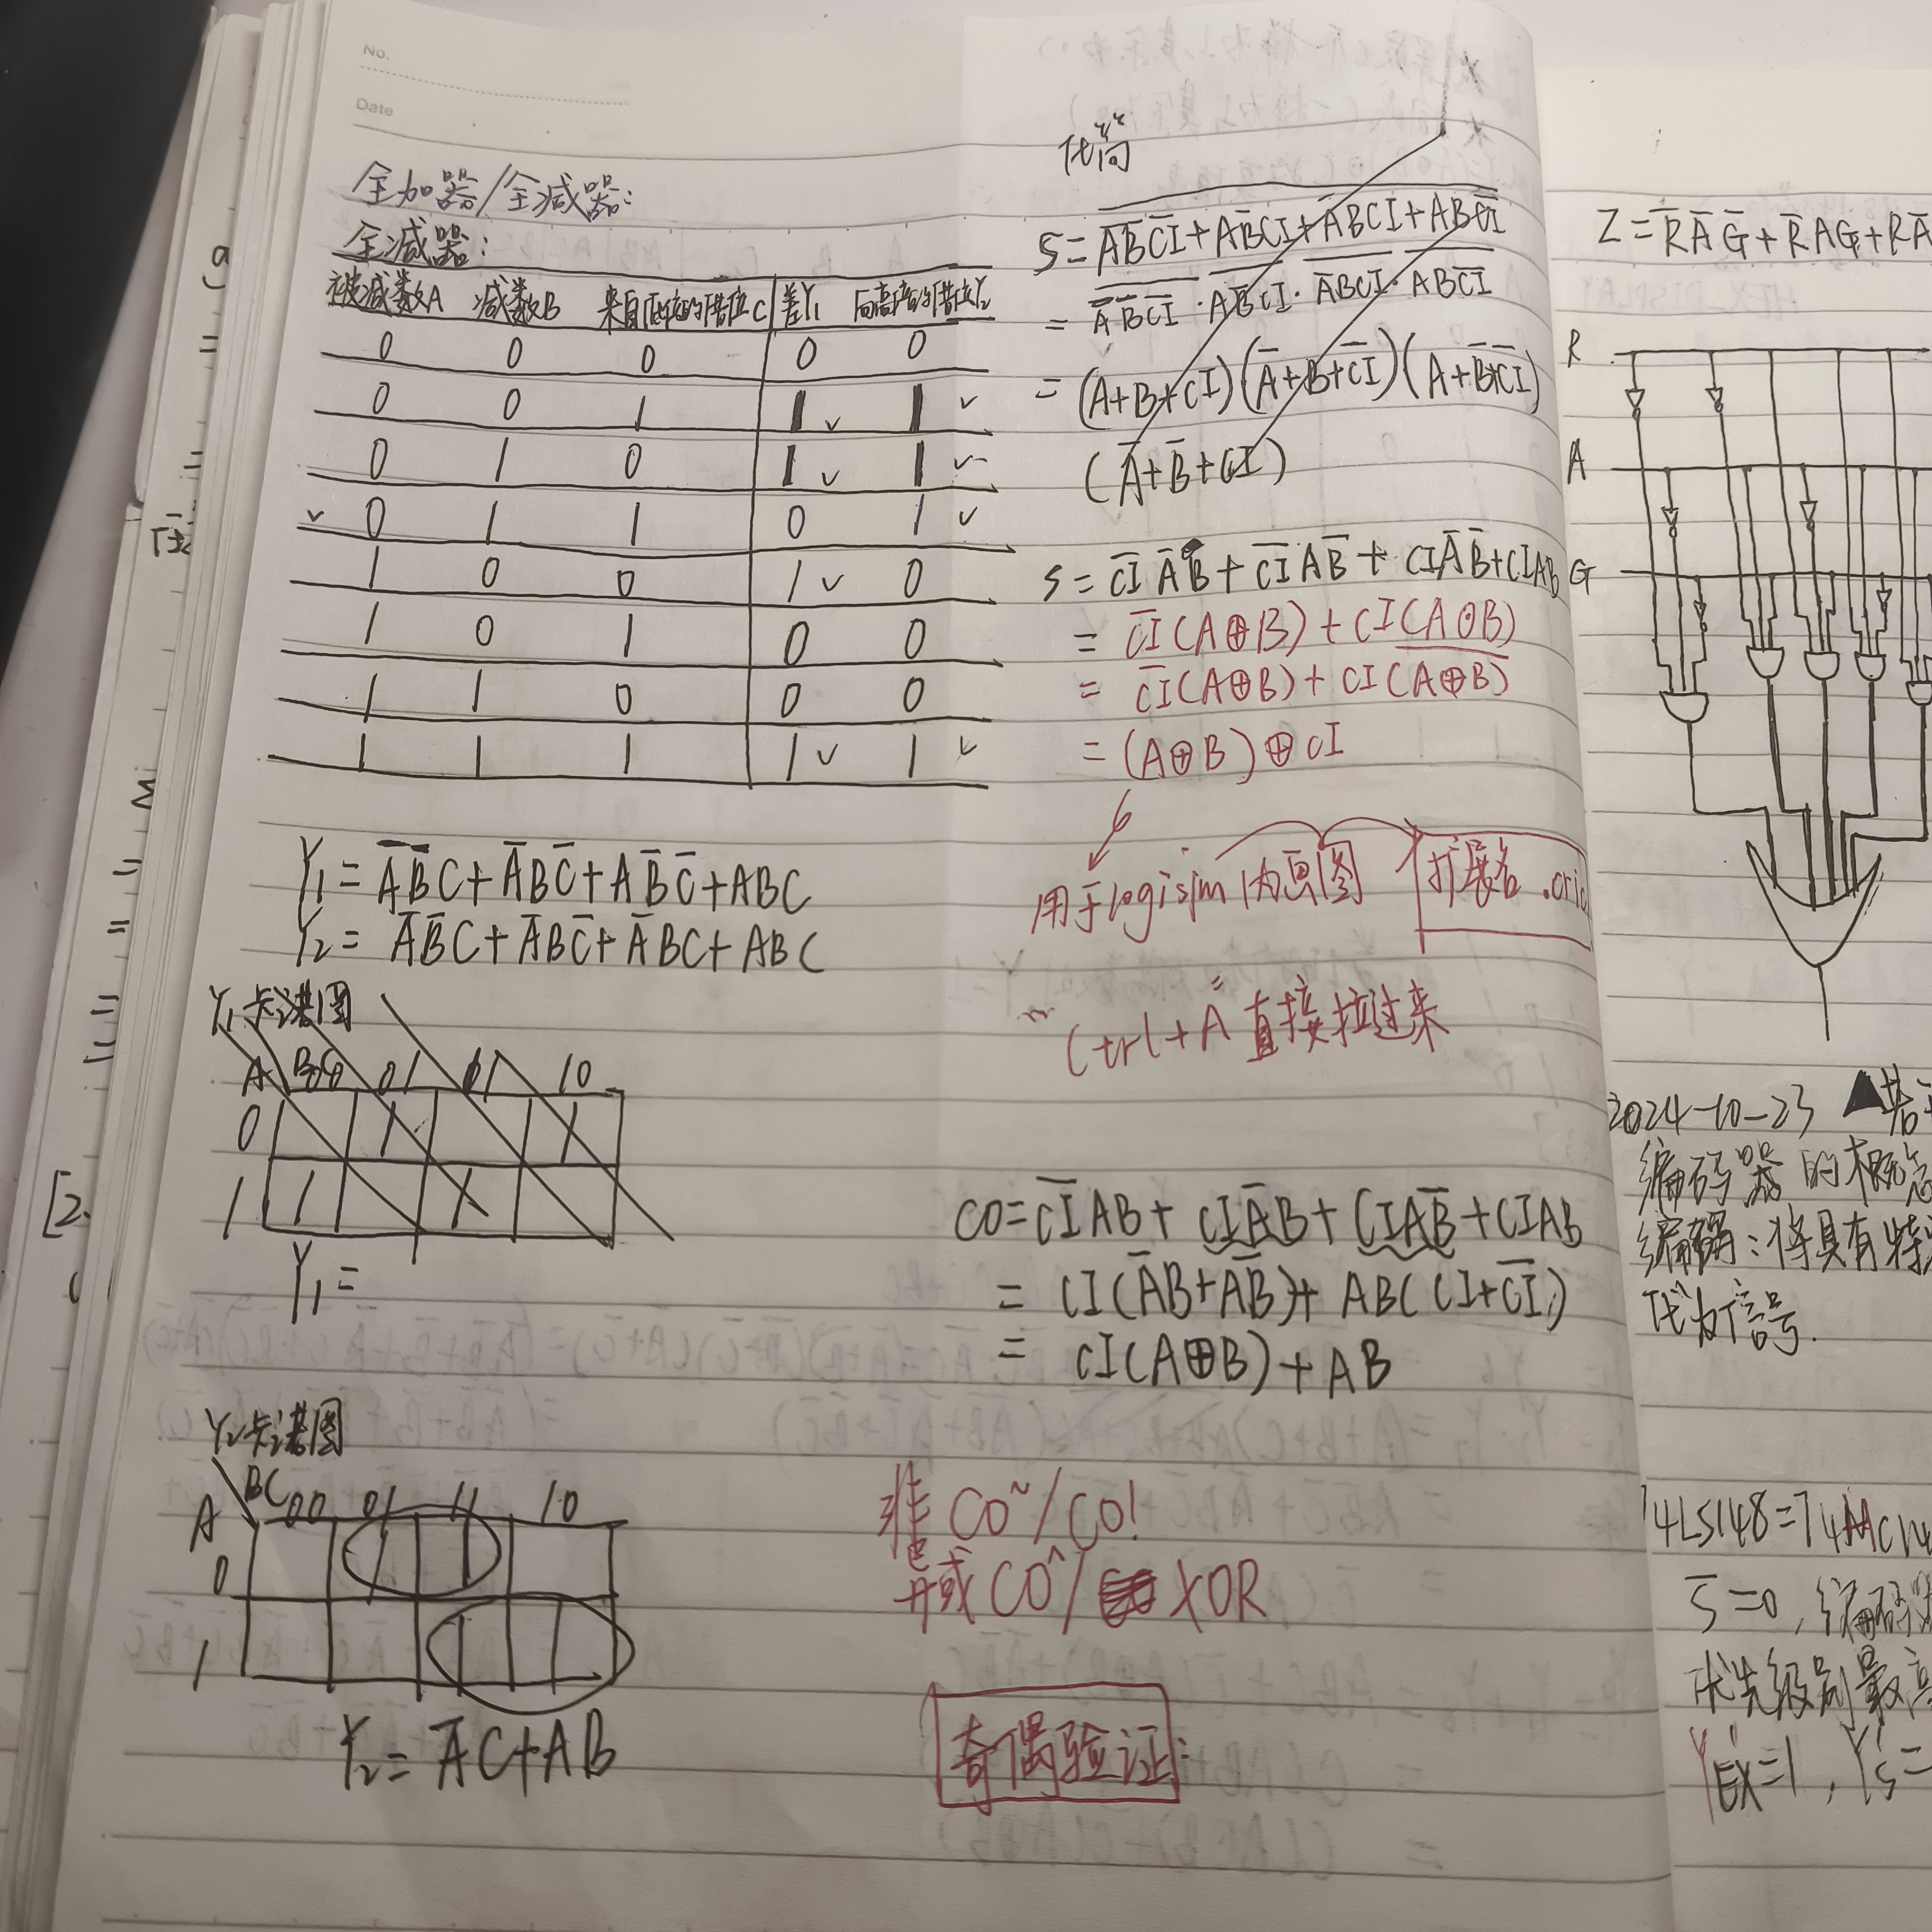 No.
Date
全加器/全减器:
全减器:
被减数A 减数B 来自低位的借位C 差Y₁ 向高位的借位Y₂
0 0 0 0 0
0 0 1 1 ✓ 1 ✓
0 1 0 1 ✓ 1 ✓
✓ 0 1 1 0 1 ✓
1 0 0 1 ✓ 0
1 0 1 0 0
1 1 0 0 0
1 1 1 1 ✓ 1 ✓
Y₁ = A̅B̅C + A̅BC̅ + AB̅C̅ + ABC
Y₂ = A̅B̅C + A̅BC̅ + A̅BC + ABC
Y₁卡诺图
A BC 01 10
0 1 1
1 1 1
Y₁ =
Y₂卡诺图
A BC 00 01 11 10
0 1 1
1 1 1
Y₂ = A̅C + AB
化简
= (A+B+CI)(A̅+B+C̅I̅)(A+B̅+C̅I̅)
(A̅+B̅+CI)
= C̅I̅(A⊕B) + CI(A⊙B)
= C̅I̅(A⊕B) + CI(A̅⊕̅B̅)
= (A⊕B)⊕CI
用于logisim内画图 扩展名
"Ctrl+A" 直接拉过来
CO = C̅I̅AB + CIA̅B + CIAB̅ + CIAB
= CI(A̅B+AB̅) + AB(CI+C̅I̅)
= CI(A⊕B) + AB
非 CO~/CO!
异或 CO^/ XOR
奇偶验证:
Z = R̅A̅G̅ + R̅AG + RA̅
R
A
G
2024-10-23
编码器的概念
编码:将具有特
代为信号.
74LS148=74
S̅=0, 编码
优先级别最高
Y'EX=1, Y's=